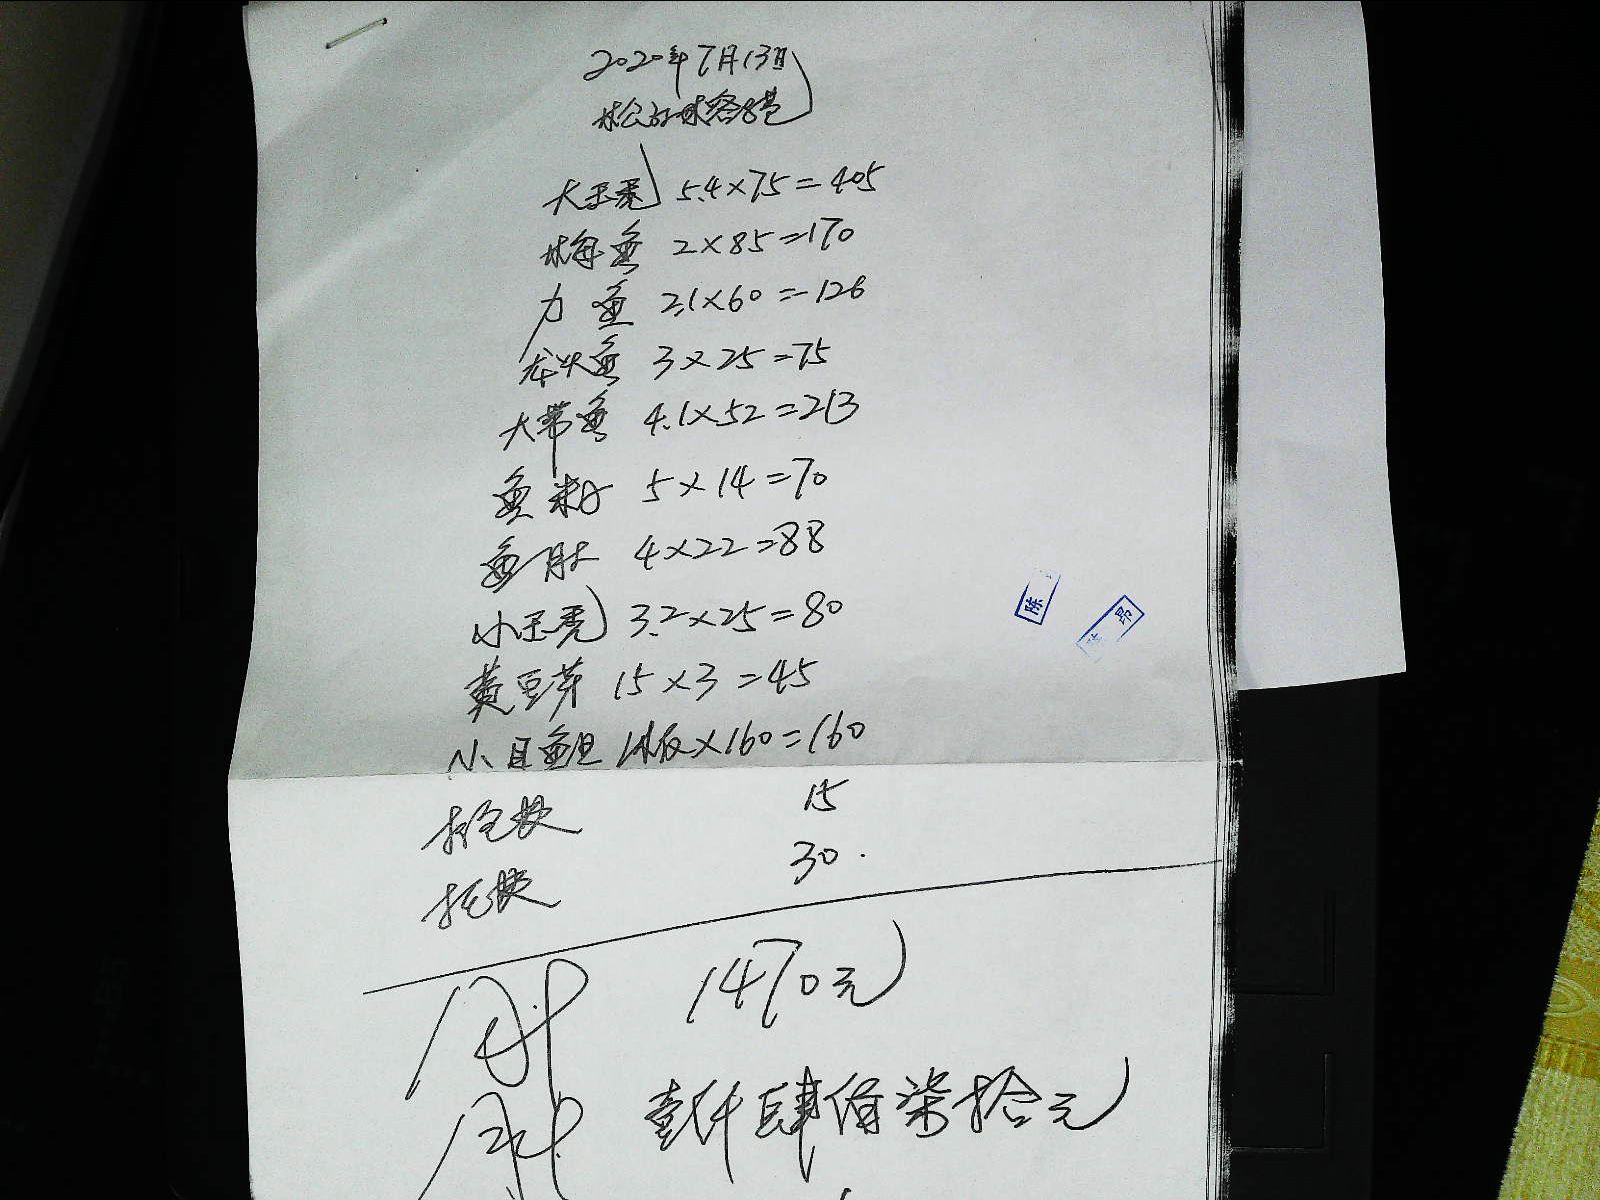 2020年7月13日
大玉秃 5.4×75=405
梅鱼 2×85=170
力鱼 2.1×60=126
龙头鱼 3×25=75
大带鱼 4.1×52=213
鱼粉 5×14=70
鱼肚 4×22=88
小玉秃 3.2×25=80
黄豆芽 15×3=45
小目鱼 ×160=160
15
30.
陈
昂
1470元
壹仟肆佰柒拾元